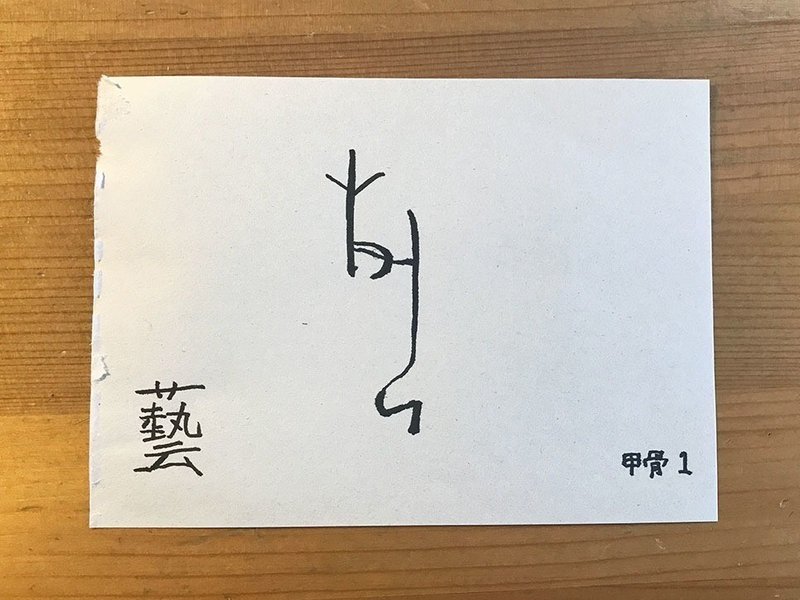 藝
甲骨 1